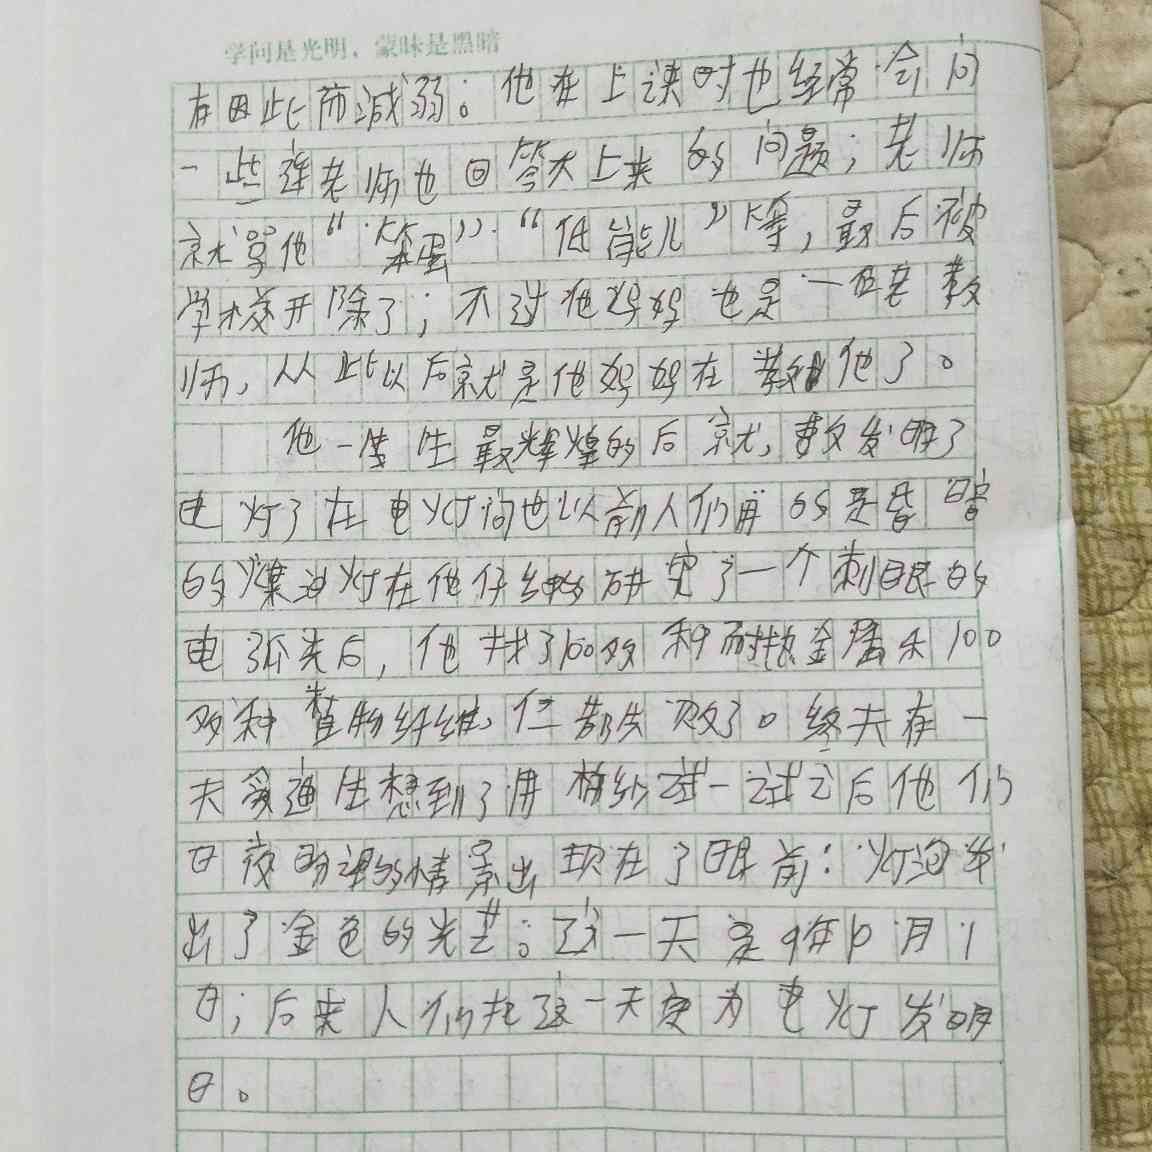 学问是光明，蒙昧是黑暗
有因此而减弱。他在上课时也经常会问
一些连老师也回答不上来的问题；老师
就骂他“笨蛋”“低能儿”等，最后被
学校开除了；不过他妈妈也是一位老教
师，从此以后就是他妈妈在教他了。
他一生最辉煌的后就，数发明了
电灯了在电灯问世以前人们用的是昏暗
的煤油灯在他仔细研究了一个刺眼的
电弧光后，他找了1600效种耐热金属禾100
效种植物纤维，但都失败了。终夫有一
天爱迪生想到了用棉纱试一试之后他们
日夜盼望的情景出现在了眼前：灯泡发
出了金色的光芒。这一天是年10月
日；后来人们把这一天定为电灯发明
日。